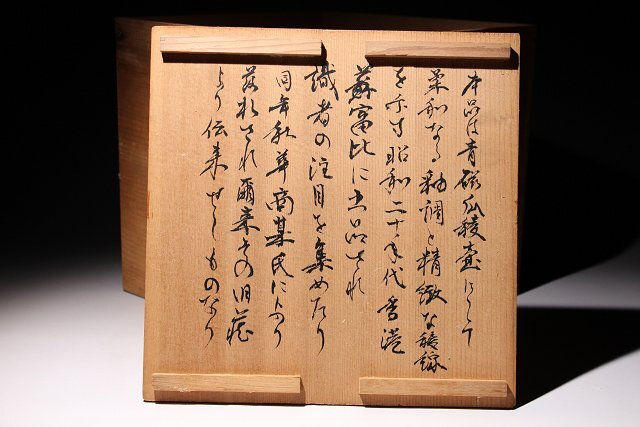 本品は青磁瓜稜壷にして
柔和なる釉調と精緻な稜線
を示す昭和二十年代香港
蘇富比に出品され
識者の注目を集めたり
同年秋華商某氏により
落札され爾来その旧蔵
より伝来せしものなり